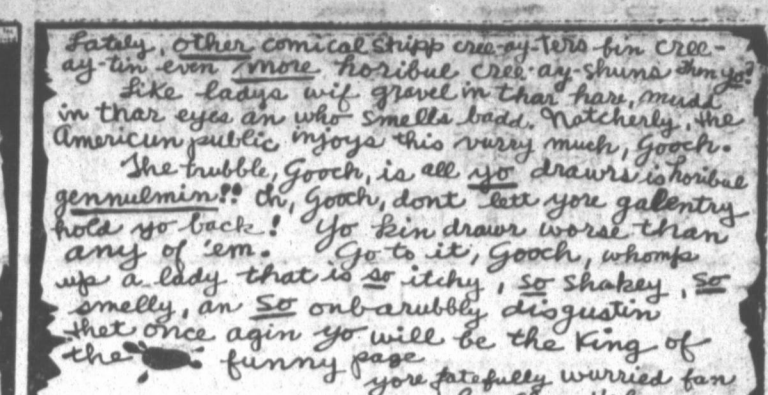 Lately, other comical stripp cree-ay-ters bin cree-
ay-tin even more horibul cree-ay-shuns than yo?
Like ladys wif gravel in thar hare, mudd
in thar eyes an who smells badd. Natcherly, the
Americun public injoys this vurry much, Gooch.
The trubble, Gooch, is all yo drawrs is horibul
gennulmin!! Oh, Gooch, dont lett yore galentry
hold yo back! Yo kin drawr worse than
any of 'em. Go to it, Gooch, whomp
up a lady that is so itchy, so shakey, so
smelly, an so onbarubbly disgustin
thet once agin yo will be the King of
the funny page
yore fatefully wurried fan